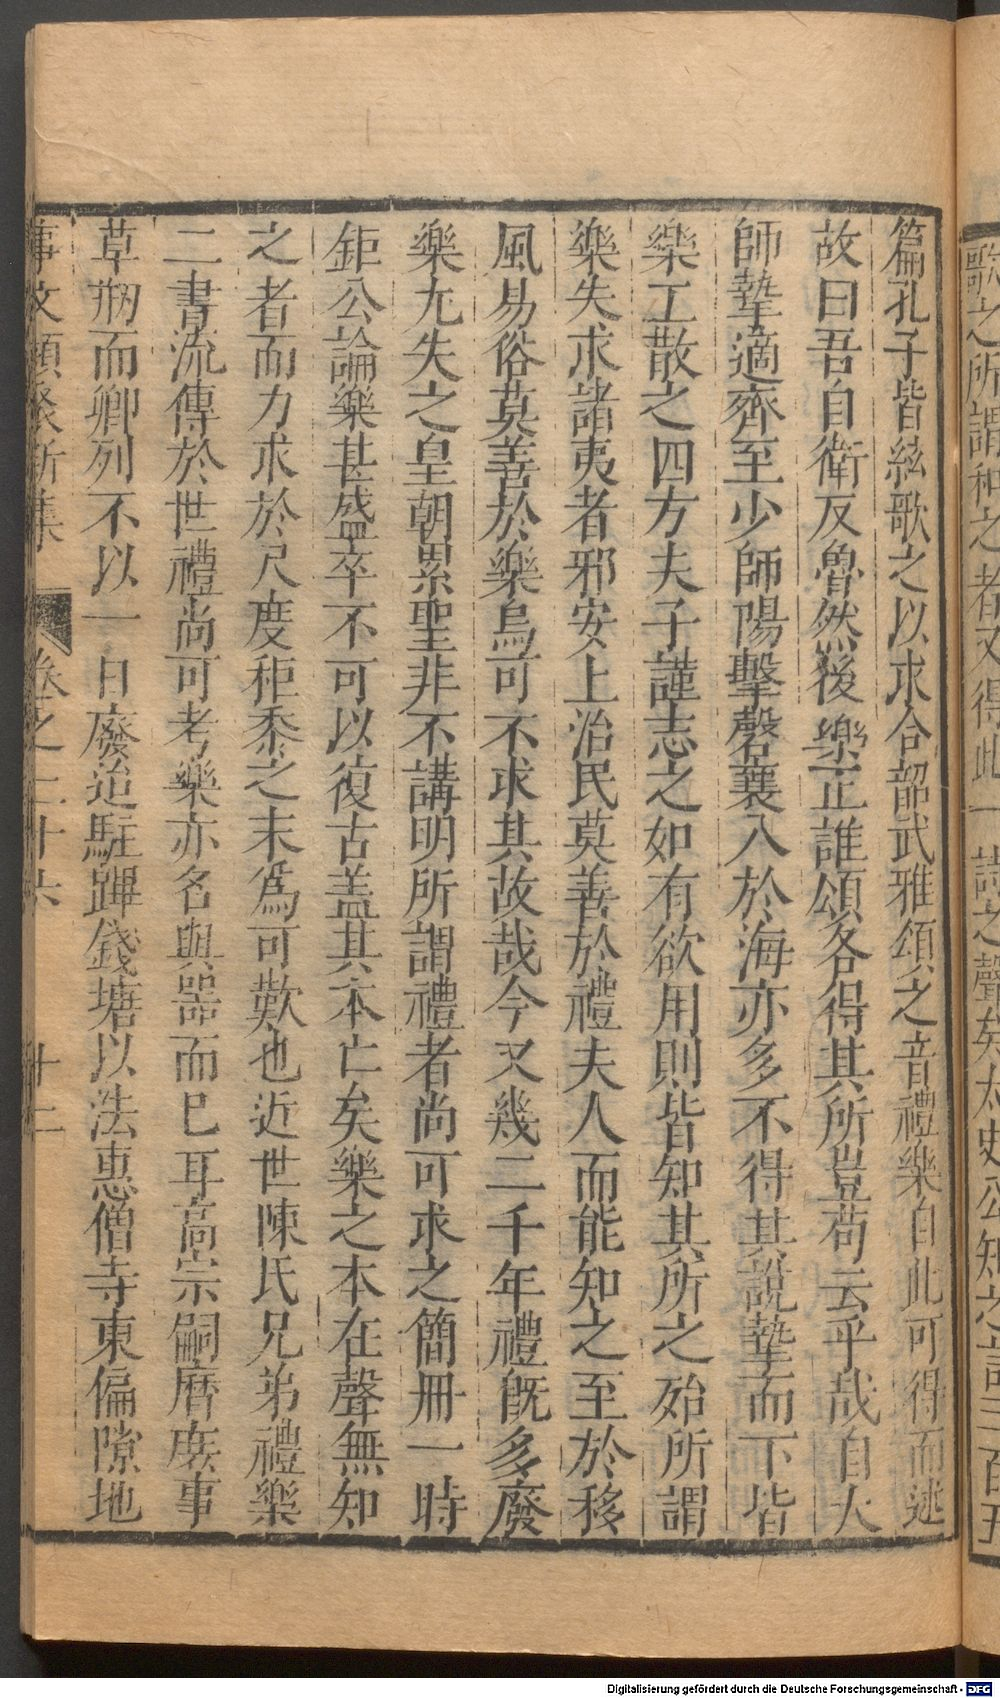 歌之所謂和之者又得此一詩之聲矣太史公知之詩三百五
篇孔子皆絃歌之以求合韶武雅頌之音禮樂自此可得而述
故曰吾自衛反魯然後樂正誰頌各得其所豈苟云乎哉自大
師摯適齊至少師陽擊磬襄入於海亦多不得其說摯而下皆
樂工散之四方夫子謹志之如有欲用則皆知其所之殆所謂
樂失求諸夷者邪安上治民莫善於禮夫人而能知之至於移
風易俗莫善於樂烏可不求其故哉今又幾二千年禮旣多廢
樂尤失之皇朝累聖非不講明所謂禮者尚可求之簡冊一時
鉅公論樂甚盛卒不可以復古盖其本亡矣樂之本在聲無知
之者而力求於尺度秬黍之末爲可歎也近世陳氏兄弟禮樂
二書流傳於世禮尚可考樂亦名與器而已耳高宗嗣曆庶事
草刱而卿列不以一日廢迨駐蹕錢塘以法惠僧寺東偏隙地
事文類聚新集 卷之二十六 十二
Digitalisierung gefördert durch die Deutsche Forschungsgemeinschaft - DFG